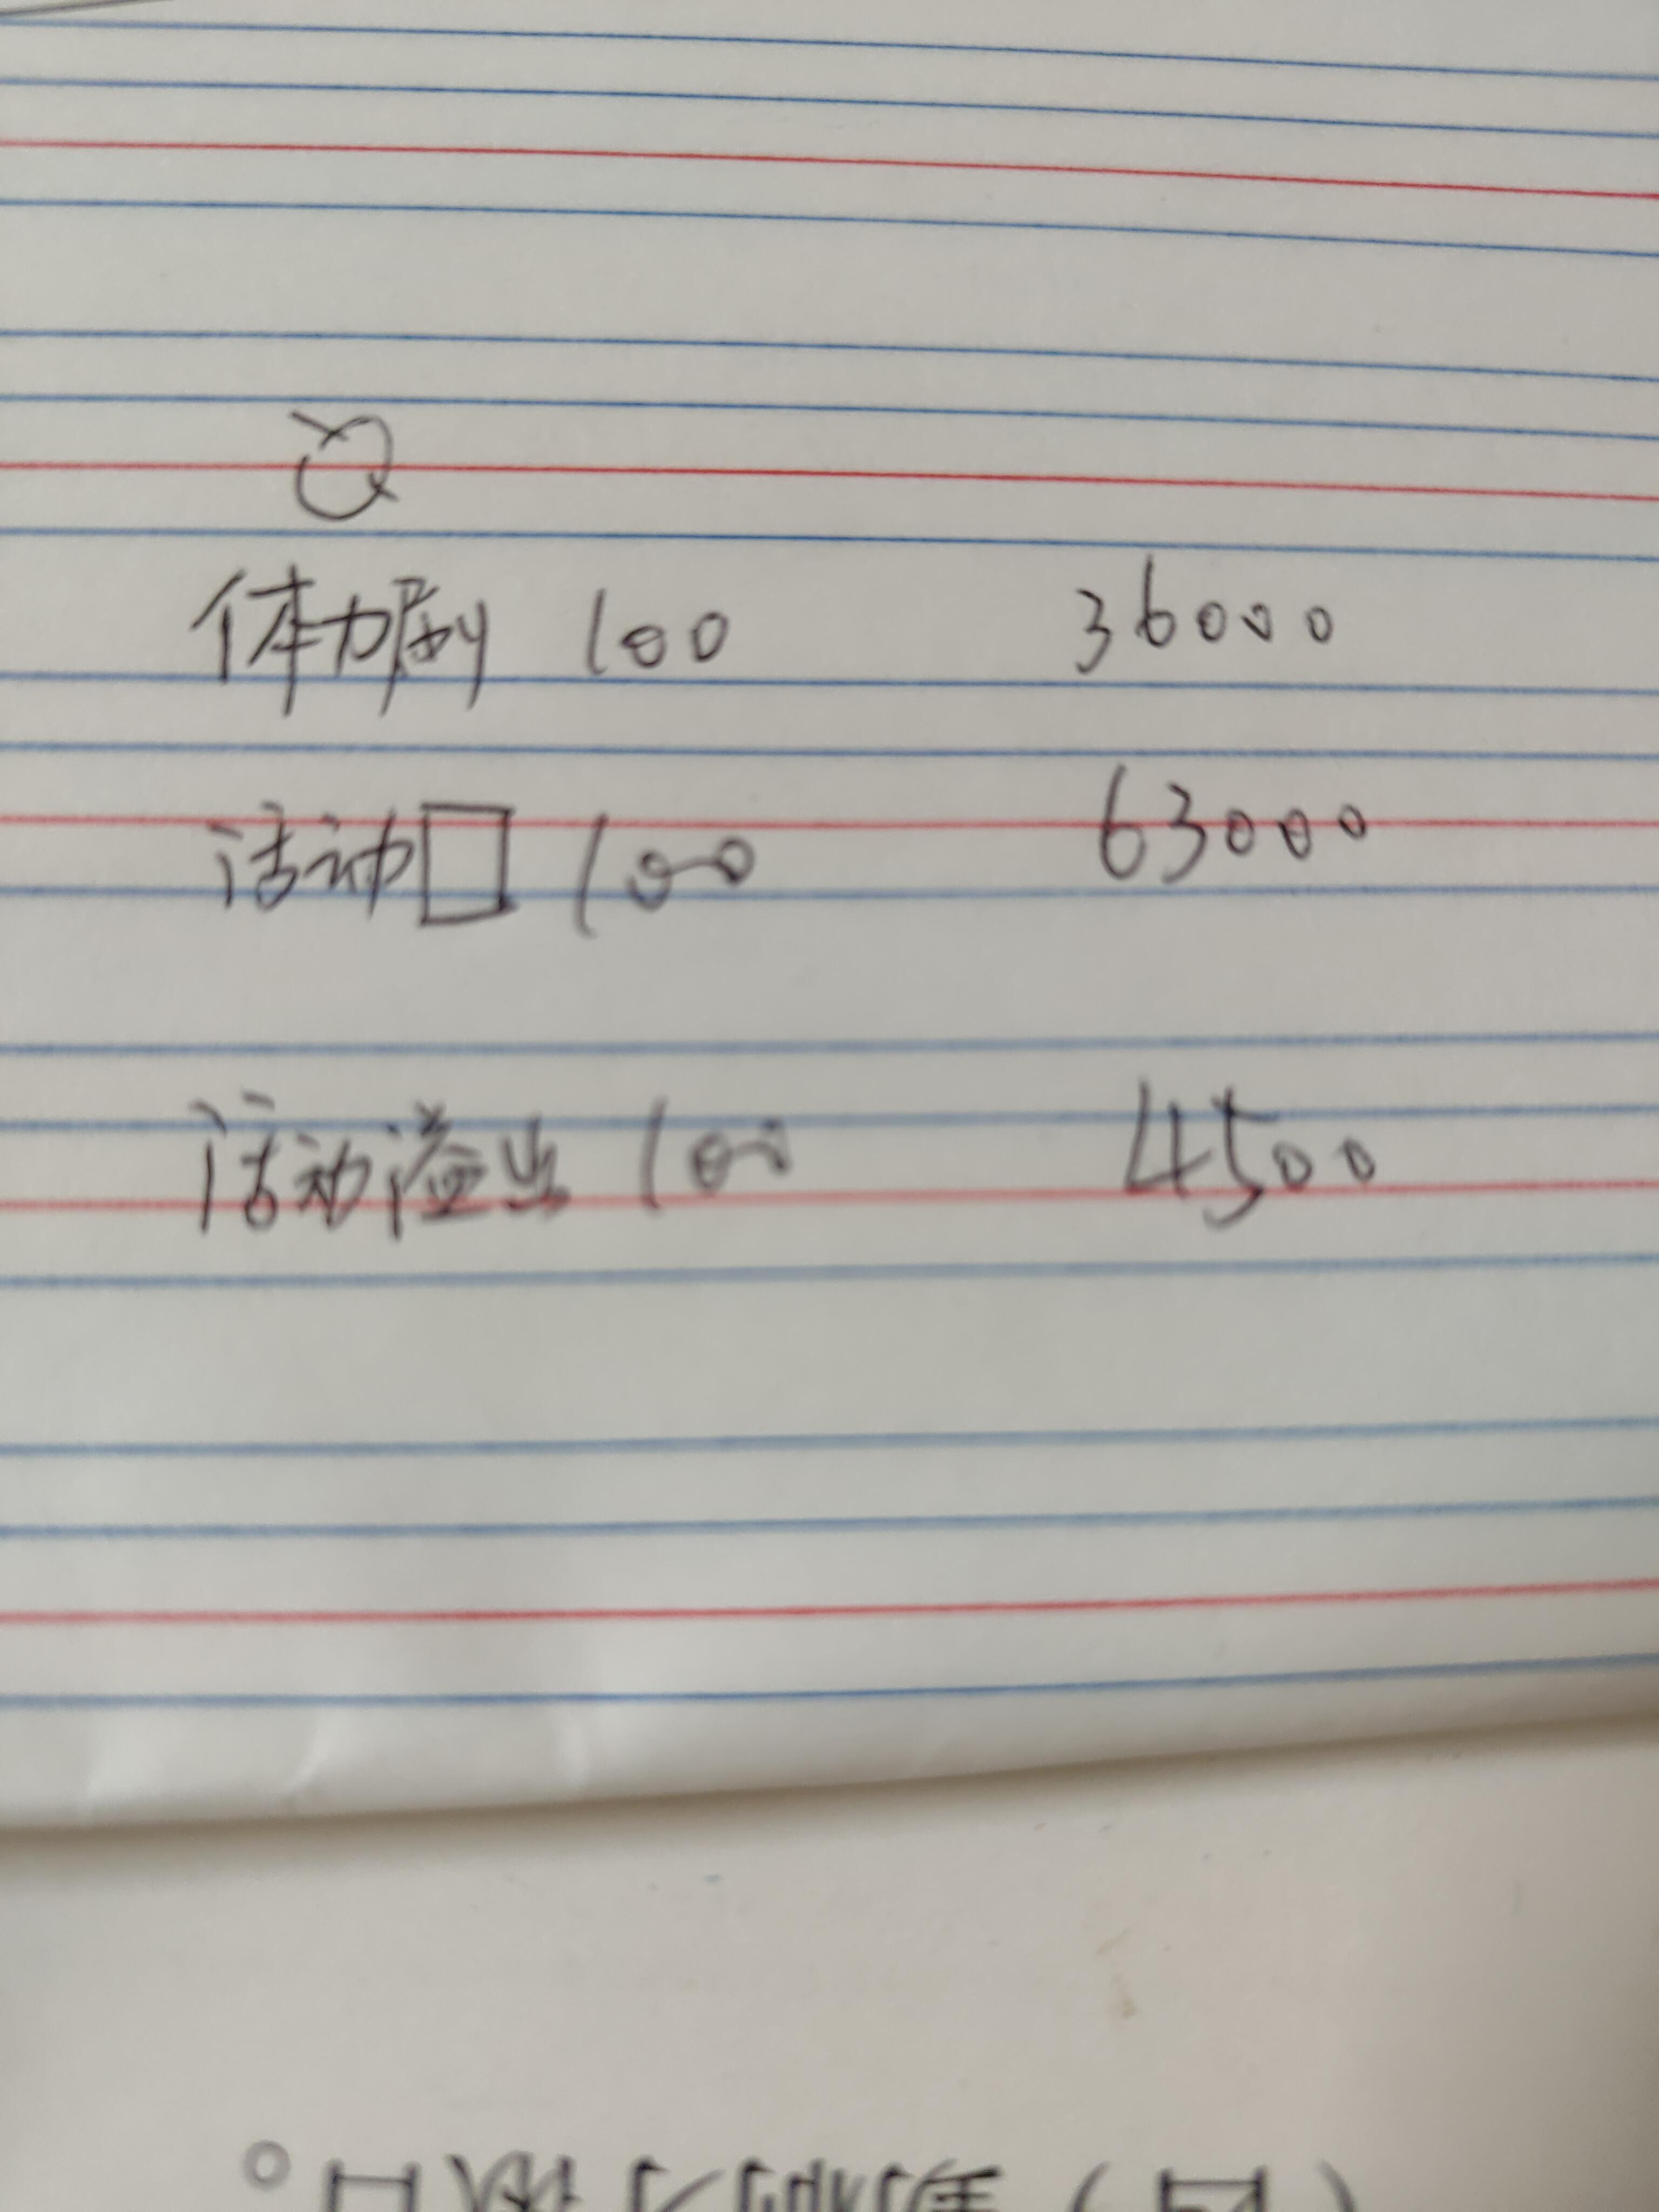 体力刷 100 36000
活动口 100 63000
活动溢出 100 4500